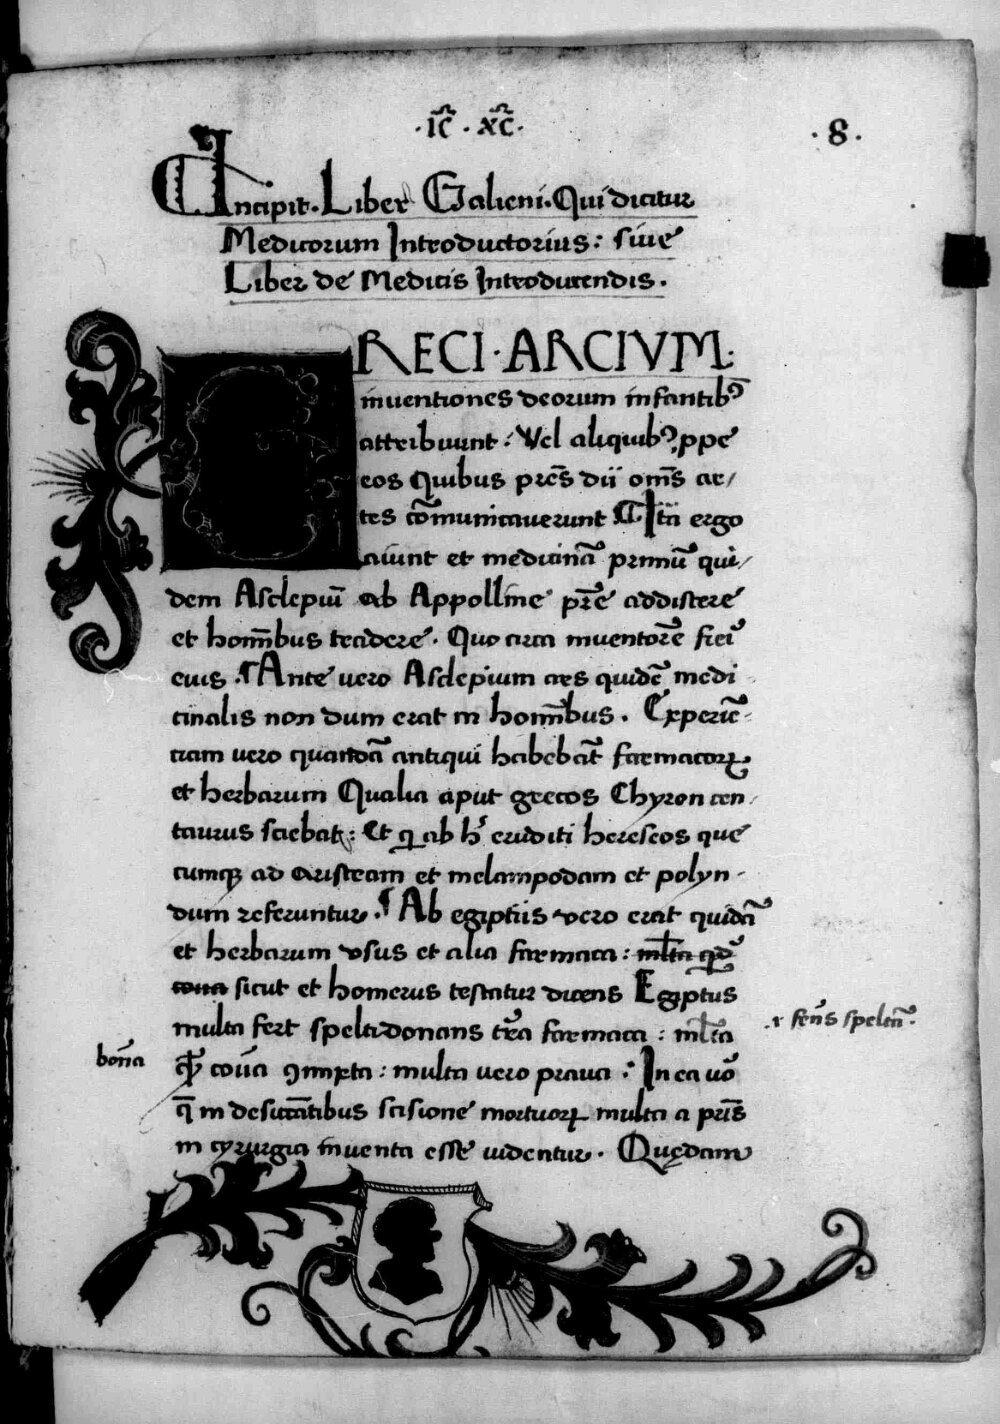 ·IC̃·XC̃·
·8·
Incipit. Liber Galieni. Qui dicitur
Medicorum Introductorius: siue
Liber de Medicis Introducendis.
GRECI·ARCIVM·
inuentiones deorum infantibꝰ
attribuunt: Vel aliquibꝰ ꝓpe
eos Quibus pr̃es dii om̃s ar/
tes com̃unicauerunt ¶ Ita ergo
aiunt et medicinã primũ qui/
dem Asclepiũ ab Appolline pr̃e addiscere
et hom̃ibus tradere. Quo circa inuentorẽ
eius. ¶ Ante vero Asclepium ars quidẽ medi
cinalis non dum erat in hom̃ibus. Experiẽ-
tiam vero quandã antiqui habebãt farmacorꝝ
et herbarum Qualia aput grecos Chyron cen-
taurus sciebat: Et qͥ ab hͥ eruditi hereseos que
cumqꝫ ad aristeam et melampodam et polyn-
dum referuntur. ¶ Ab egiptiis vero erat quidã
et herbarum vsus et alia farmaca: ml̃ta qͥdẽ
coua sicut et homerus testatur dicens Egiptus
multa fert speltidonans tr̃a farmaca: ml̃ta
r fer̃s speltã.
bona
coũa ꝯmixta: multa vero praua: In ea uõ
q̃ in desuctãtibus scisione mortuorꝝ multa a prĩs
in cyrurgia inuenta esse uidentur. Quędam